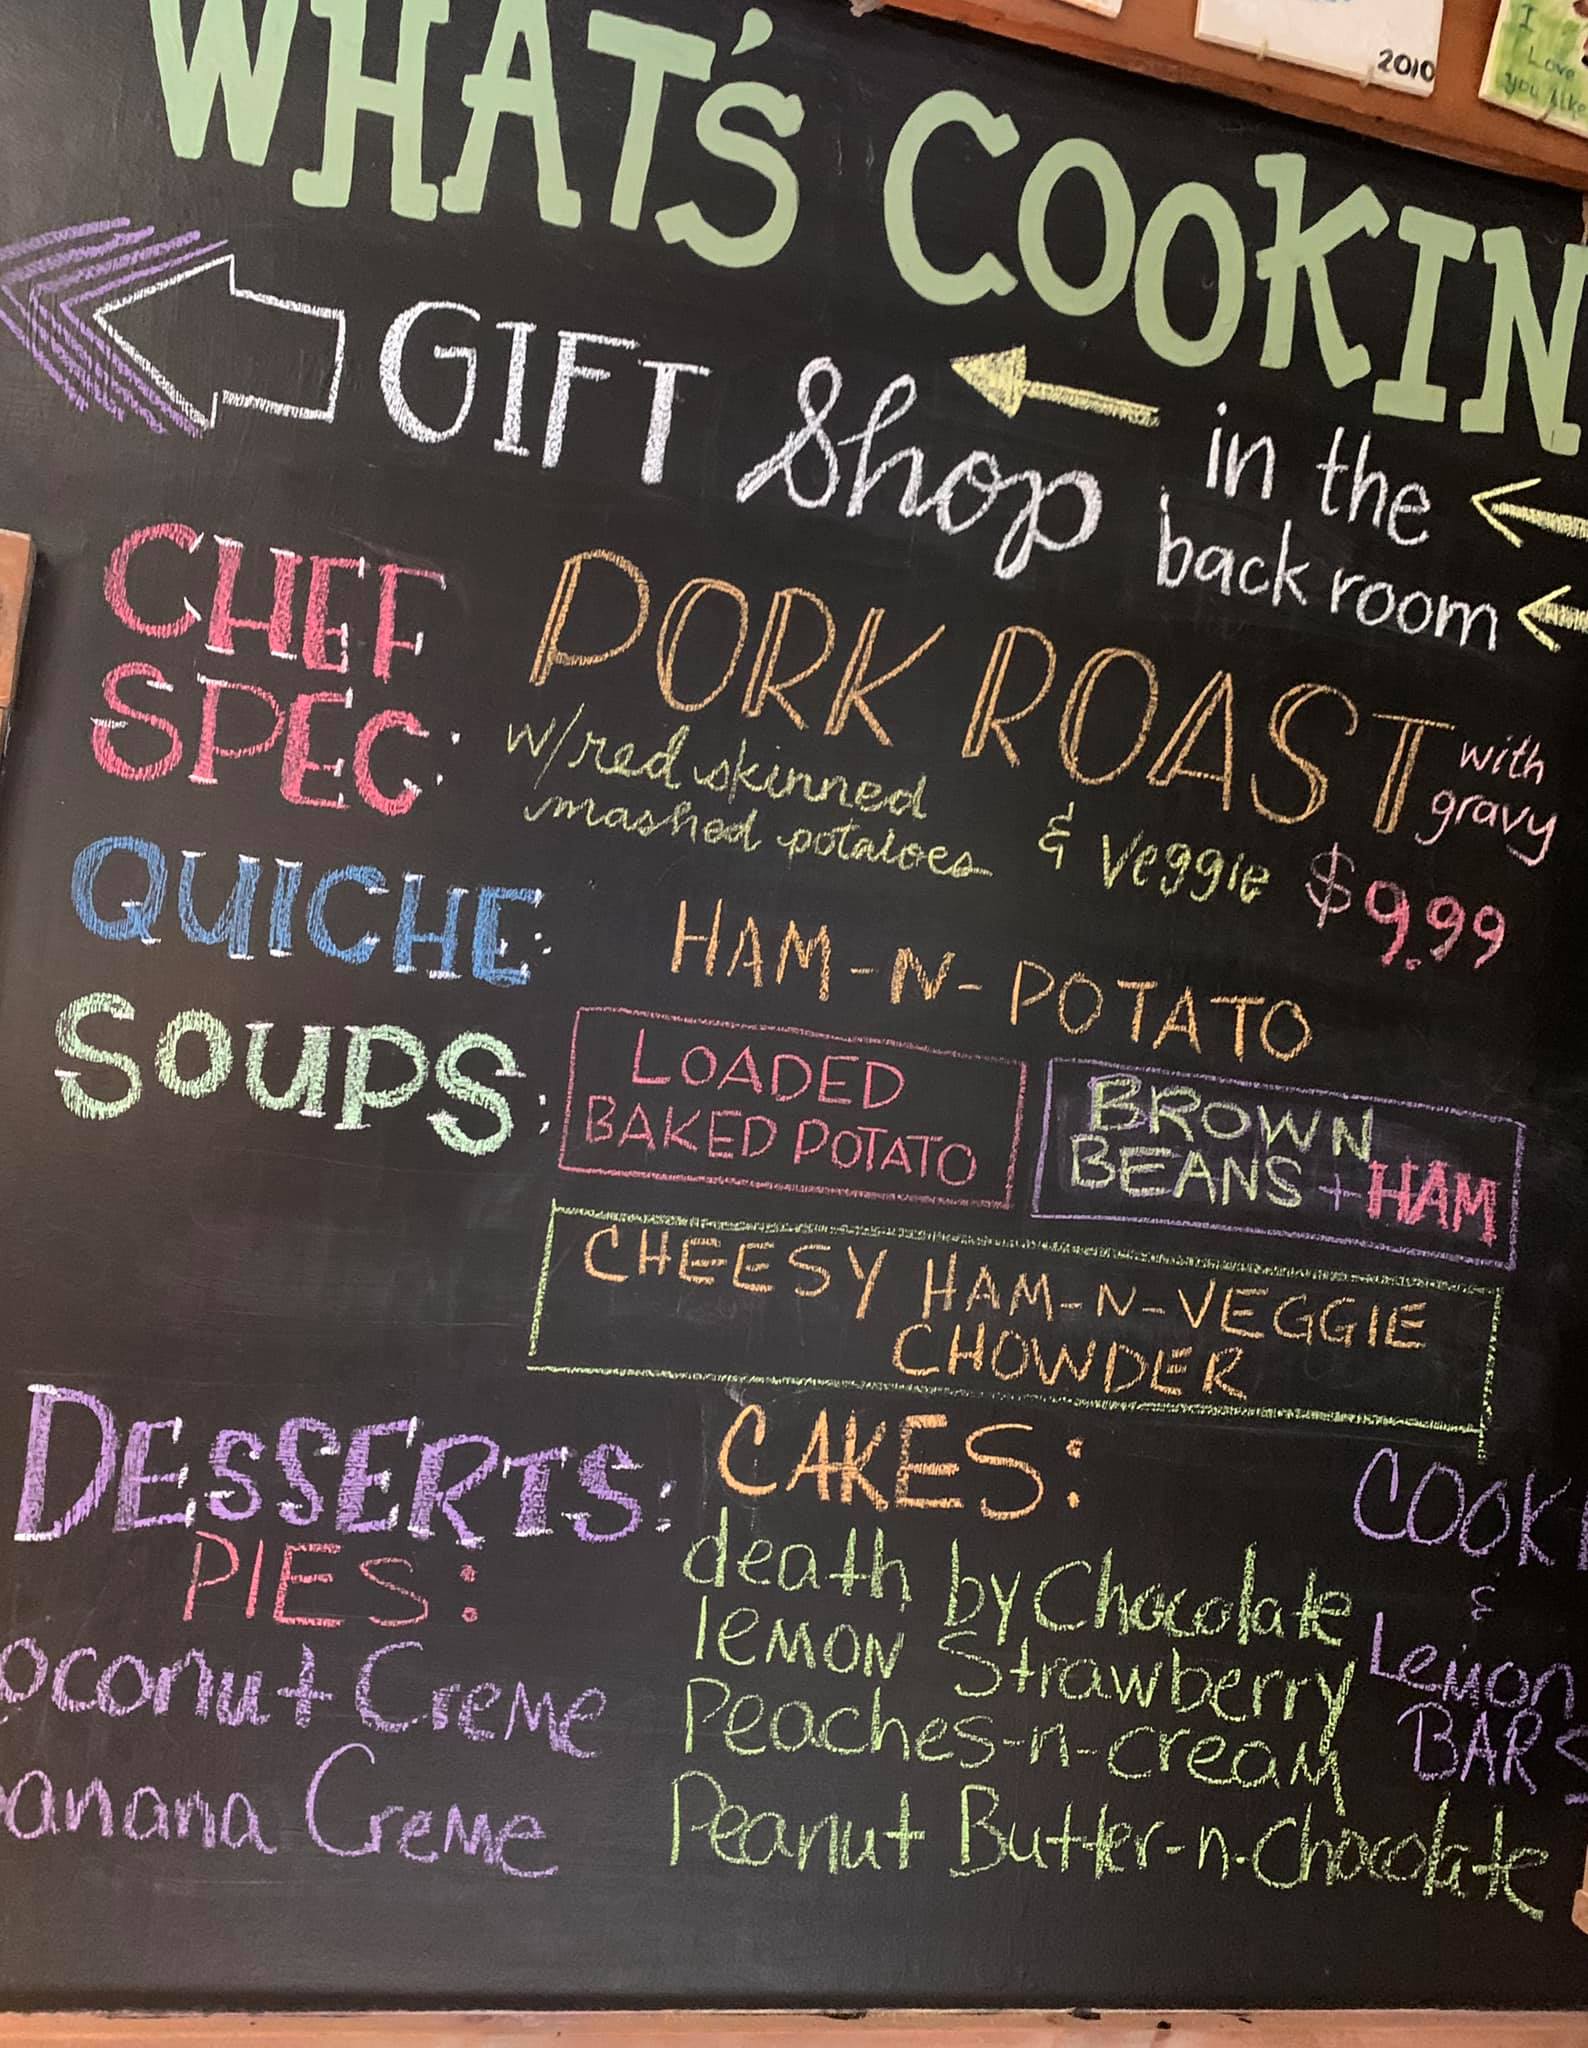 2010
I
Love
you like
WHAT'S COOKIN
GIFT Shop in the
back room
CHEF
SPEC: PORK ROAST with
gravy
w/red skinned
mashed potatoes & Veggie $9.99
QUICHE: HAM-N-POTATO
SOUPS: LOADED
BAKED POTATO
BROWN
BEANS + HAM
CHEESY HAM-N-VEGGIE
CHOWDER
DESSERTS:
PIES:
oconut Creme
anana Creme
CAKES:
death by Chocolate
lemon Strawberry
Peaches-n-cream
Peanut Butter-n-Chocolate
COOKI
&
Lemon
BARS